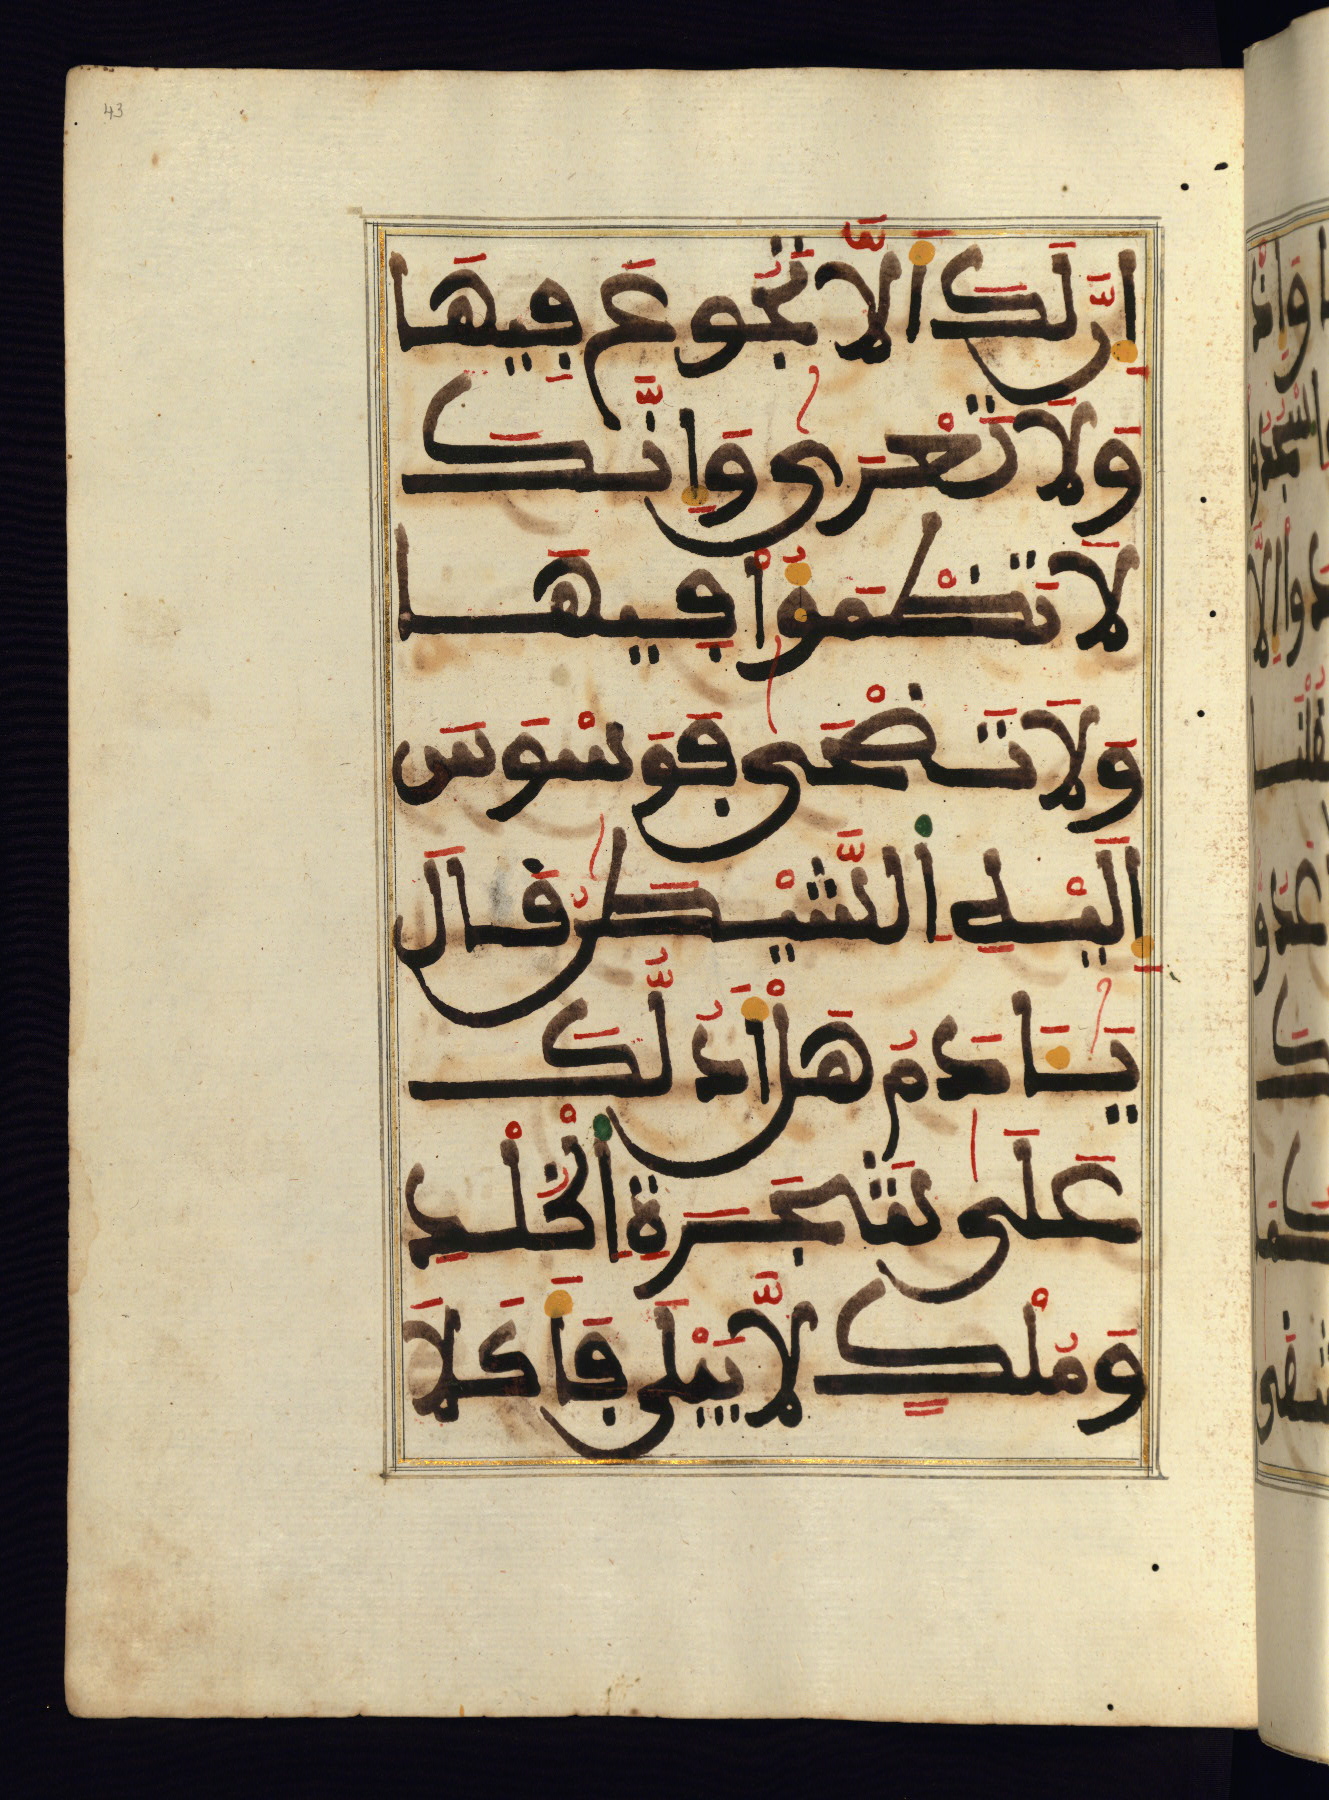 43
إِنَّ لَكَ أَلَّا تَجُوعَ فِيهَا
وَلَا تَعْرَىٰ وَإِنَّكَ
لَا تَظْمَؤُاْ فِيهَا
وَلَا تَضْحَىٰ فَوَسْوَسَ
إِلَيْهِ اِ۬لشَّيْطَٰنُ قَالَ
يَٰـَٔادَمُ هَلْ أَدُلُّكَ
عَلَىٰ شَجَرَةِ اِ۬لْخُلْدِ
وَمُلْكٍ لَّا يَبْلَىٰ فَأَكَلَا